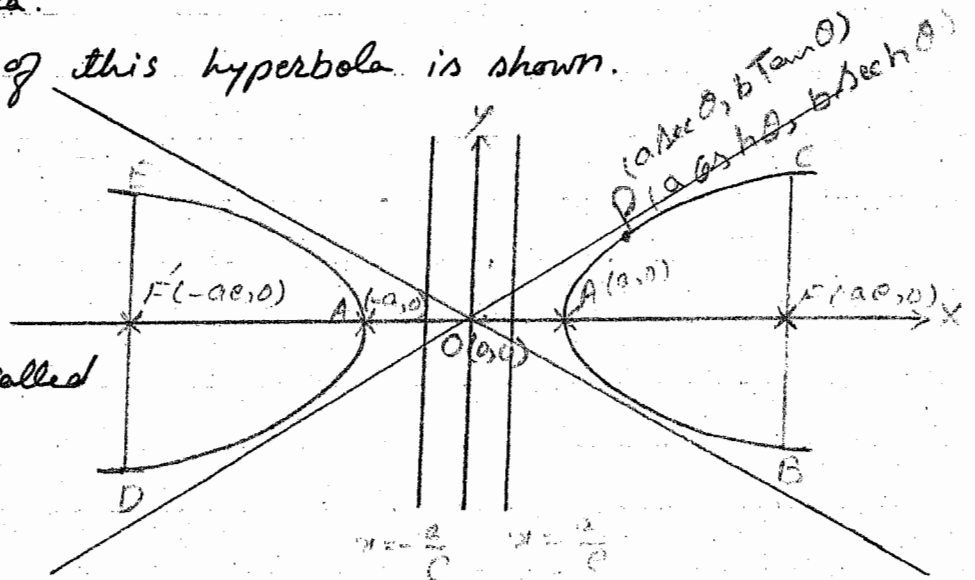 of this hyperbola is shown.
(a sec θ, b Tan θ)
P(a cosh θ, b sech θ)
Y
E
C
F'(-ae,0)
A (-a,0)
A (a,0)
F(ae,0)
X
O(0,0)
called
D
B
x = - a/e
x = a/e